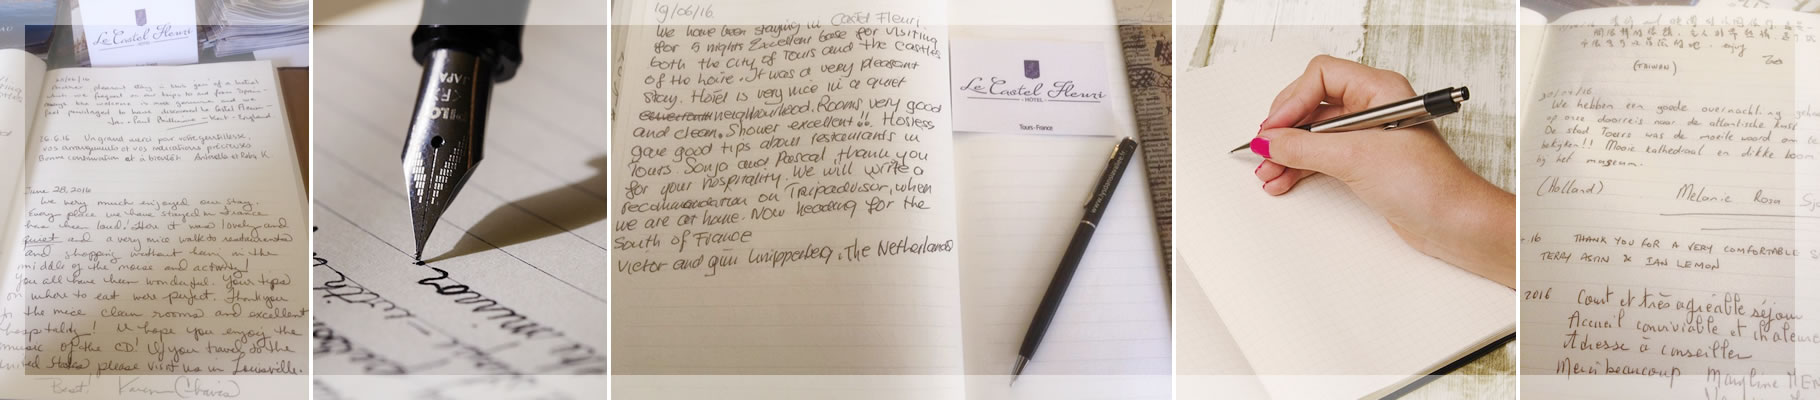 Le Castel Fleuri
HOTEL
25/06/16
Another pleasant stay in this gem of a hotel
which we frequent on our trips to and from Spain -
always the welcome is most genuine and we
feel privileged to have discovered Le Castel Fleuri -
Kent - England
26.6.16 Un grand merci pour votre gentillesse,
vos arrangements et vos indications précieuses
Bonne continuation et à bientôt
June 28, 2016
We very much enjoyed our stay.
Every place we have stayed in France
has been loud. Here it was lovely and
quiet and a very nice walk to restaurants
and shopping without being in the
middle of the noise and activity!
You all have been wonderful. Your tips
on where to eat were perfect. Thank you
for the nice clean rooms and excellent
hospitality! I hope you enjoy the
music of the CD! If you travel to the
United States please visit us in Louisville.
Best! Karen
JAPAN
19/06/16.
We have been staying in Castel Fleuri.
for 5 nights Excellent base for visiting
both the city of Tours and the castles
of the Loire. It was a very pleasant
stay. Hotel is very nice in a quiet
neighbourhood. Rooms very good
and clean. Shower excellent!! Hostess
gave good tips about restaurants in
Tours. Sonja and Pascal, thank you
for your hospitality. We will write a
recommendation on Tripadvisor, when
we are at home. Now heading for the
South of France
Victor and The Netherlands
Le Castel Fleuri
- HOTEL -
Tours - France
(TAIWAN)
We hebben een goede
op onze doorreis naar de atlantische kust
De stad Tours was de moeite waard om te
bekijken!! Mooie kathedraal en dikke boom
bij het museum.
(Holland) Melanie Rosa
.16 THANK YOU FOR A VERY COMFORTABLE S
TERRY ASTIN & IAN LEMON
2016 Court et très agréable séjour
Accueil conviviable et chaleure
Adresse à conseiller
Merci beaucoup Maryline